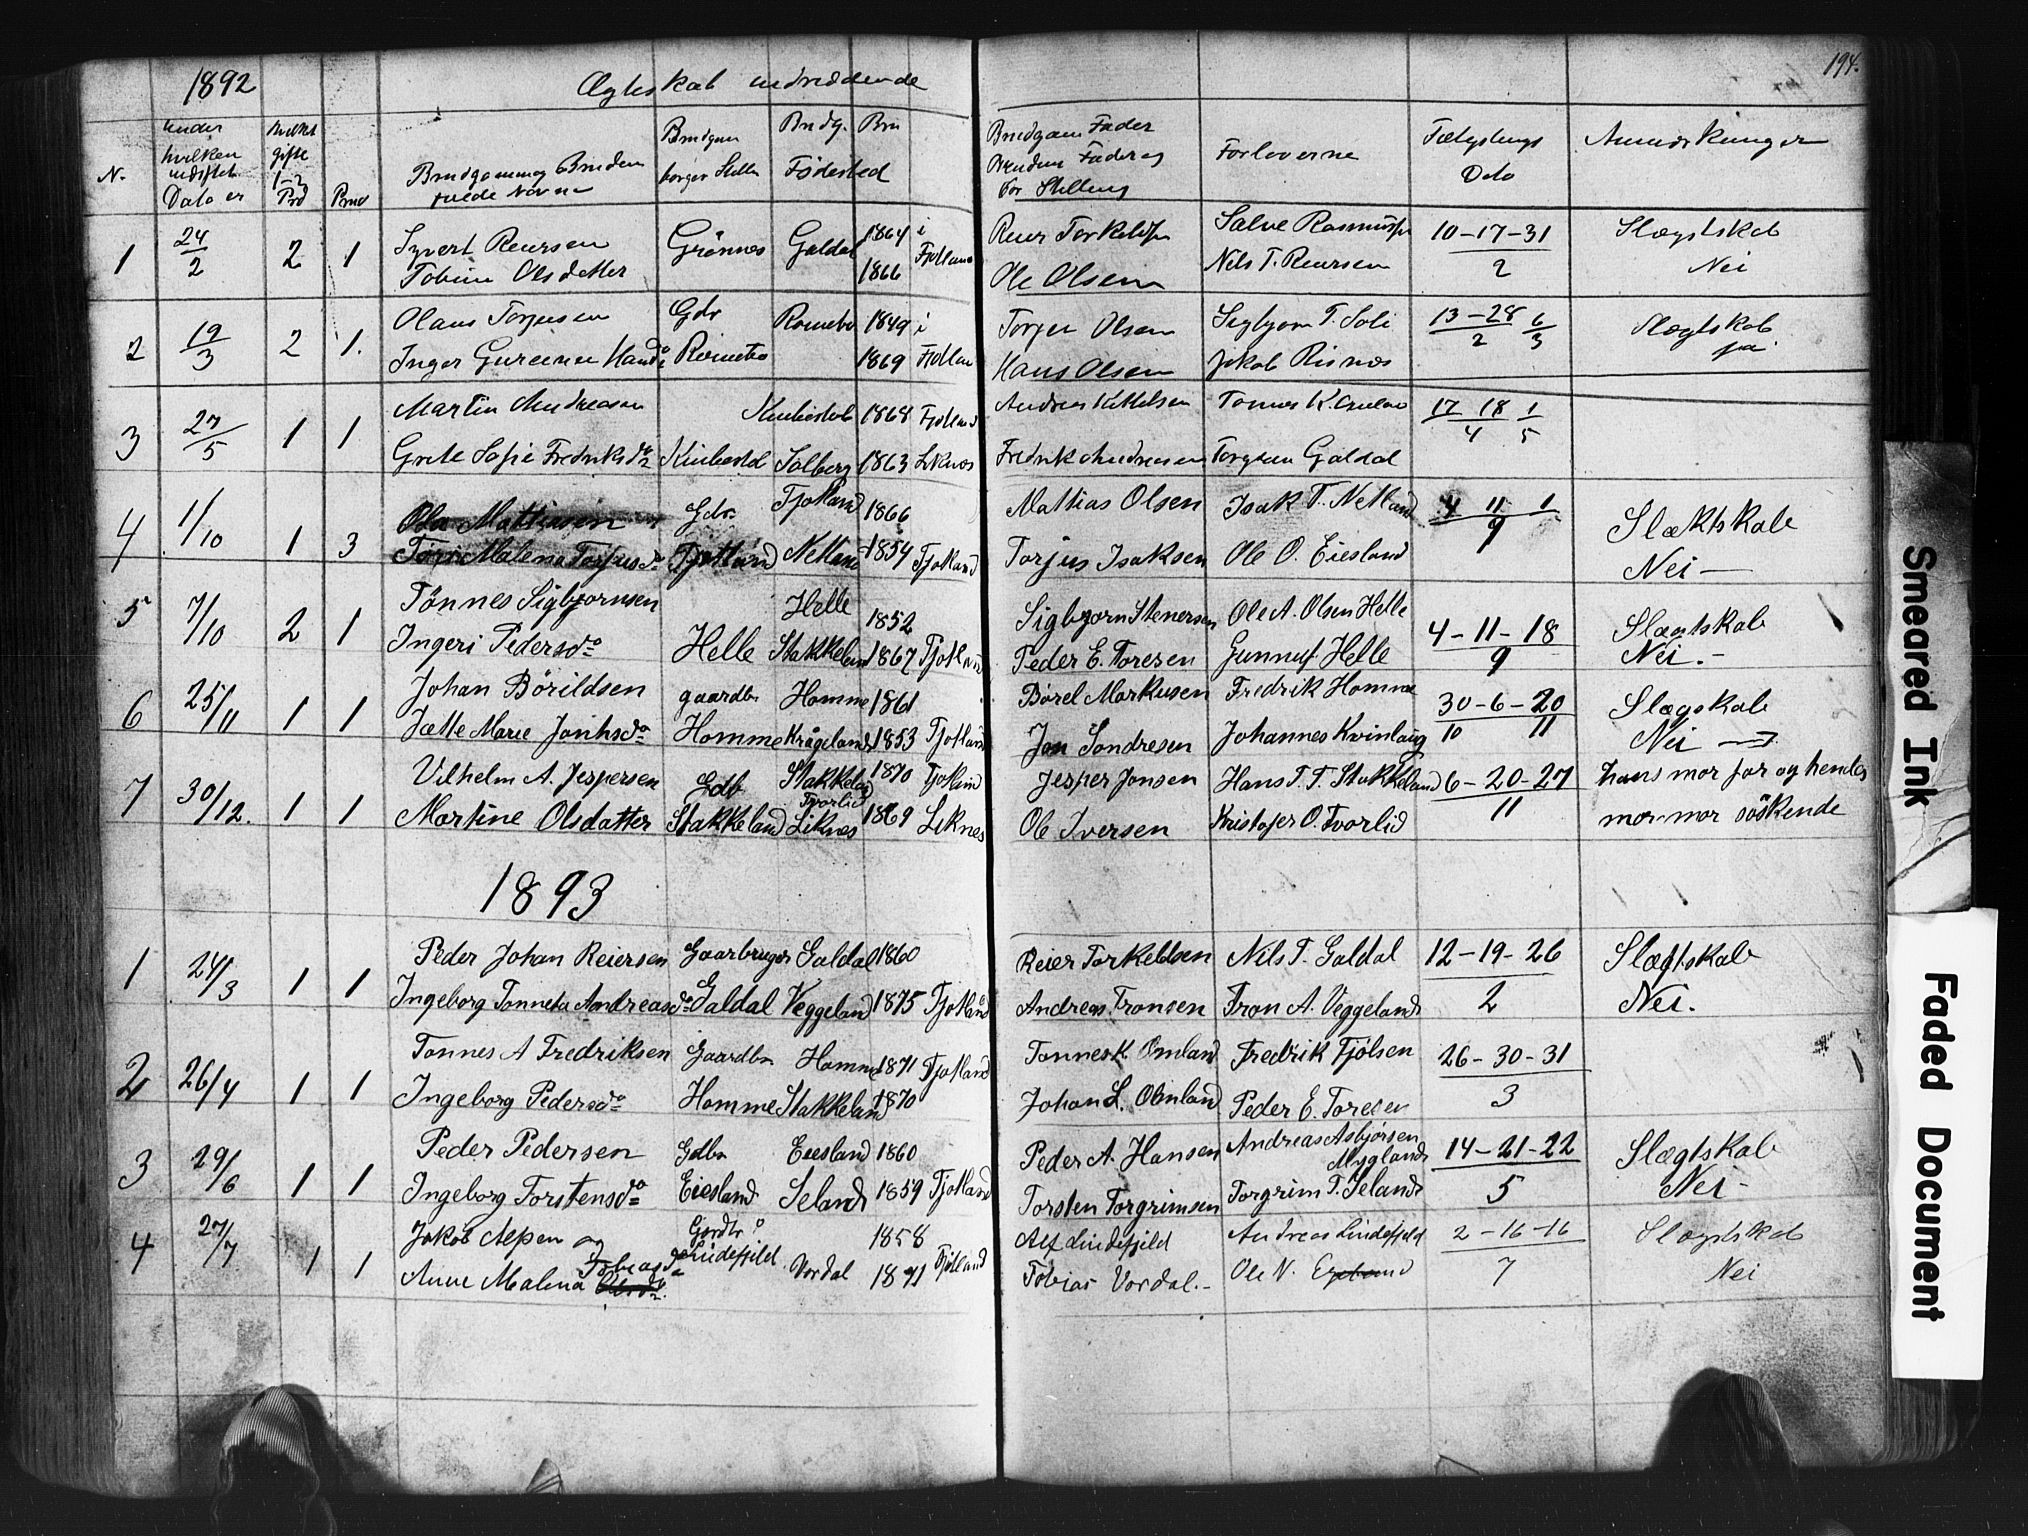 194.
1892 Ægteskab indtrædende
N. under hvilken indstet Dato er
hvilket Gifte 1-2 Brd Brud
Brudgommog Bruden fulde Navne
Brudgom borger Still
Brudg. Bru Fødested
Brudgom Fader Brudens Fader og bor Stilling
Forloverne
Tælysnings Dato
Anmærkninger
1 24/2 2 1 Syvert Reiersen Grönnes Galdal 1864 i Fjotland Reier Torkelds Salve Rasmuss 10-17-31 Slægtskab
Tobine Olsdatter 1866 Ole Olsen Nils T. Reiersen 2 Nei
2 19/3 2 1. Olaus Torjusen Gdr 1849 i Torjer Olsen Sigbjorn T. Soli 13-28 6 Slægtskab
Inger Hansdo 1869 Hans Olsen Jakob Risnes 2 3 ja
3 27/5 1 1 Martin Andreasen 1868 Fjotland Andreas Kittelsen Tomas K. 17 18 1
Grete Sofie Fredriksdo Solberg 1863 Liknes Fredrik Andreasen Torgem Galdal 4 5
4 1/10 1 3 Ola Mattiasen Gdr. Fjotland 1866 Mattias Olsen Isak T. Netland 4 11 1 Slæktskab
Malena Torjusdo Fjotland Netland 1854 Fjotland Torjus Isaksen Ole O. Eiesland 9 Nei –
5 7/10 2 1 Tönnes Sigbjornsen Helle 1852 Sigbjorn Stenersen Ole A. Olsen Helle 4-11-18 Slægtskab
Ingeri Pedersdo Helle Stakkeland 1867 Fjotland Peder E. Toresen Gunnuf Helle 9 Nei. –
6 25/11 1 1 Johan Börildsen gaardbr Homme 1861 Börel Markusen Fredrik Homme 30-6-20 Slægskab
Jætte Marie Homme Krågeland 1853 Fjotland Jon Sondresen Johannes Kvinlaug 10 11 Nei –
7 30/12. 1 1 Vilhelm A. Jespersen Gdb Stakkeland 1870 Fjotland Jesper Jonsen Hans T. T. Stakkeland 6-20-27 hans mor far og hendes
Tvorlid
Martine Olsdatter Stakkeland Liknes 1869 Liknes Ole Iversen Kristofer O. Tvorlid 11 mor-mor söskende
1893
1 24/3 1 1 Peder Johan Reiersen Gaarbruger Galdal 1860 Reier Torkeldsen Nils T. Galdal 12-19-26 Slægtskab
Ingeborg Tonneta Andreasdo Galdal Veggeland 1875 Fjotland Andreas Tronsen Tron A. Veggeland 2 Nei.
2 26/4 1 1 Tonnes A Fredriksen Gaardbr Homme 1871 Fjotland Tonnes K. Omland Fredrik Fjölsen 26-30-31
Ingeborg Pedersdo Homme Stakkeland 1870 Johan L. Omland Peder E. Toresen 3
3 29/6 1 1 Peder Pedersen Gdbr Eiesland 1860 Peder A. Hansen Andreas Asbjörsen Mygland 14-21-22 Slægtskab
Ingeborg Torstensdo Eiesland Seland 1859 Fjotland Torsten Torgrimsen Torgrim T. Seland 5 Nei –
4 27/7 1 1 Jakob Alfsen og Gardbr 1858 Alf Lindefjeld Andreas Lindefjeld 2-16-16 Slægtskab
Anne Malena Tobiasdo Lindefjeld Vordal 1871 Fjotland Tobias Vordal. – Ole N. 7 Nei
Smeared Ink
Faded Document